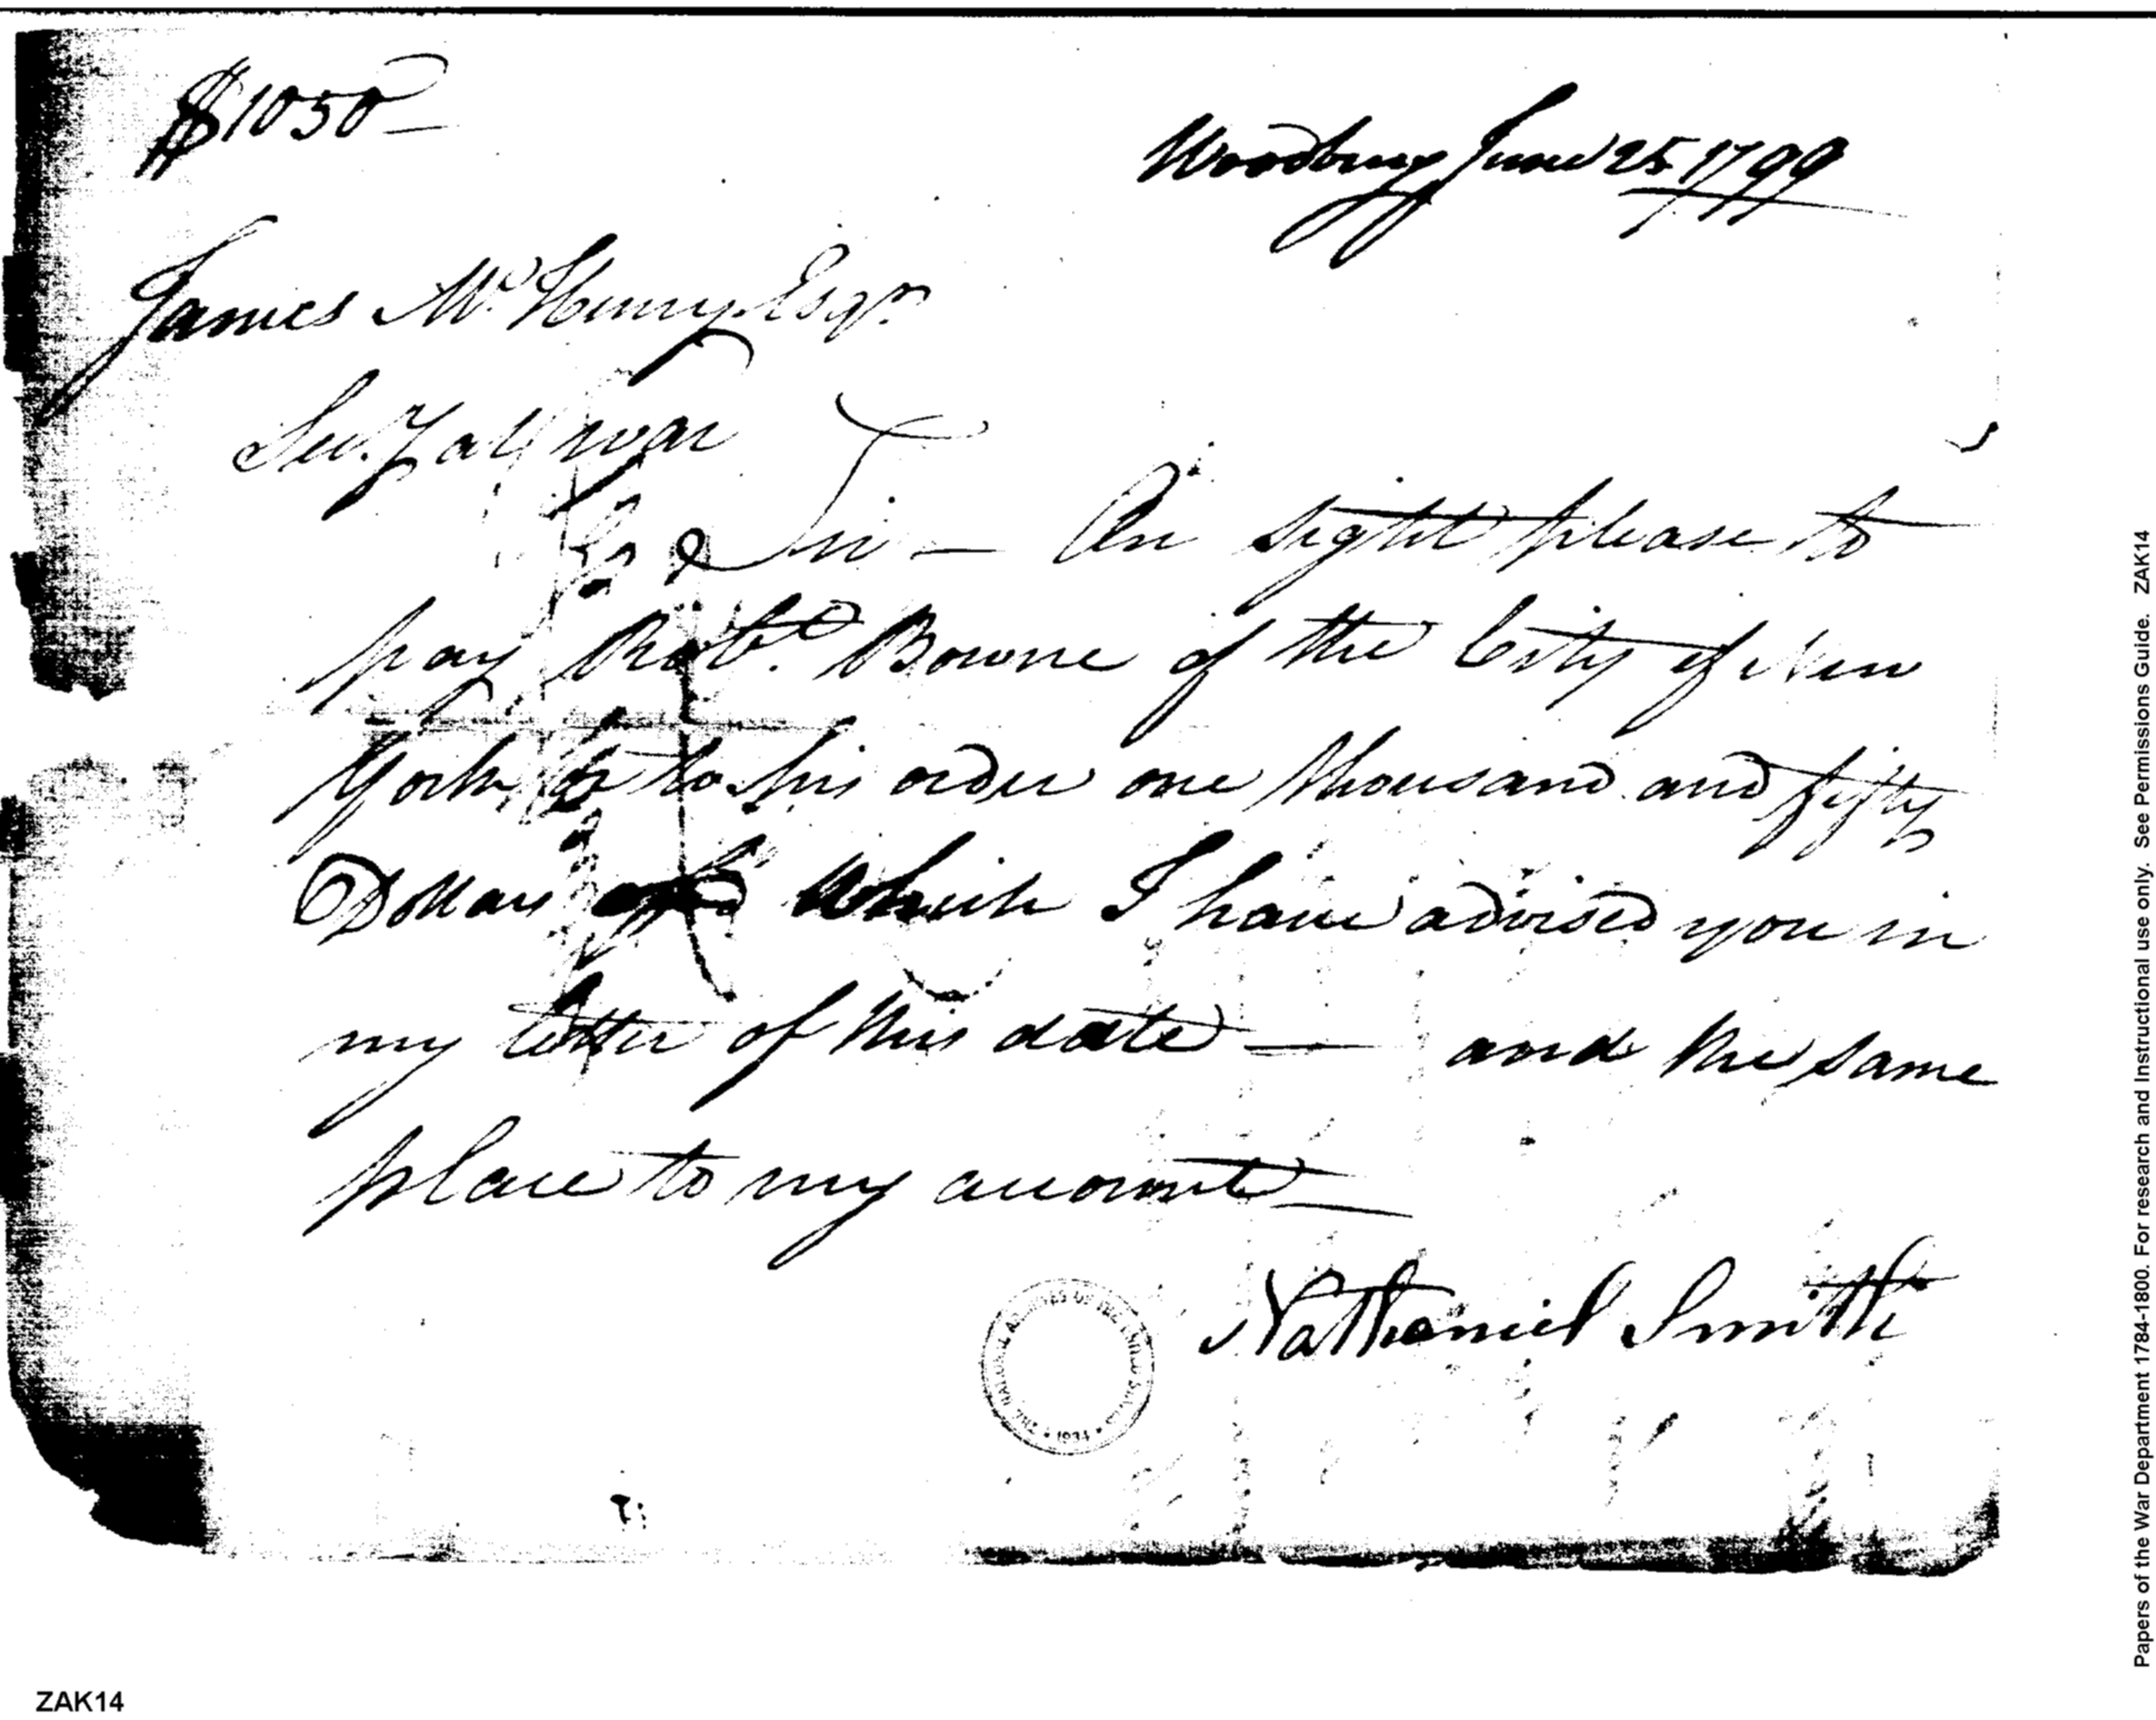 $1050
Woodbury June 25 1799
James Mc. Henry Esqr.
Secy. at war
Sir — On sight please to
pay Robt. Bowne of the City of New
York or to his order one thousand and fifty
Dollars of which I have advised you in
my letter of this date — and the same
place to my account
Nathaniel Smith
THE NATIONAL ARCHIVES OF THE UNITED STATES • 1934 •
ZAK14
Papers of the War Department 1784-1800. For research and Instructional use only. See Permissions Guide. ZAK14